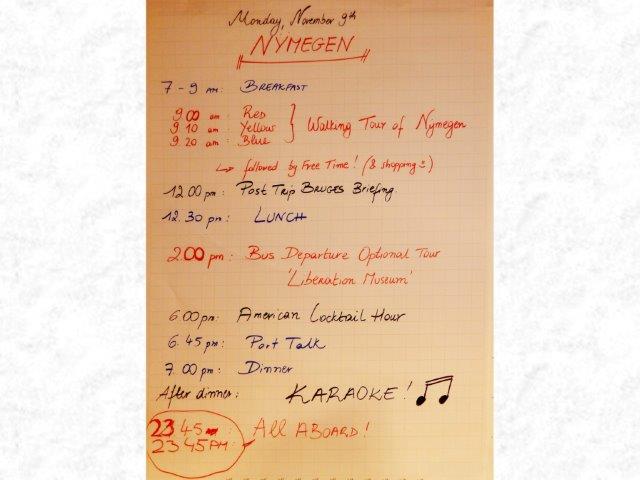 Monday, November 9th
NYMEGEN
7 - 9 am: BREAKFAST
9 00 am Red
9 10 am Yellow } Walking Tour of Nymegen
9 20 am Blue
↳ followed by Free Time! (& shopping ☺)
12.00 pm: Post Trip BRUGES Briefing.
12.30 pm: LUNCH
2.00 pm: Bus Departure Optional Tour
'LIBERATION MUSEUM'
6.00 pm: American Cocktail Hour
6.45 pm: Port Talk
7.00 pm: Dinner
After dinner: KARAOKE! ♫
23 45 : All ABOARD!
23 45 PM: